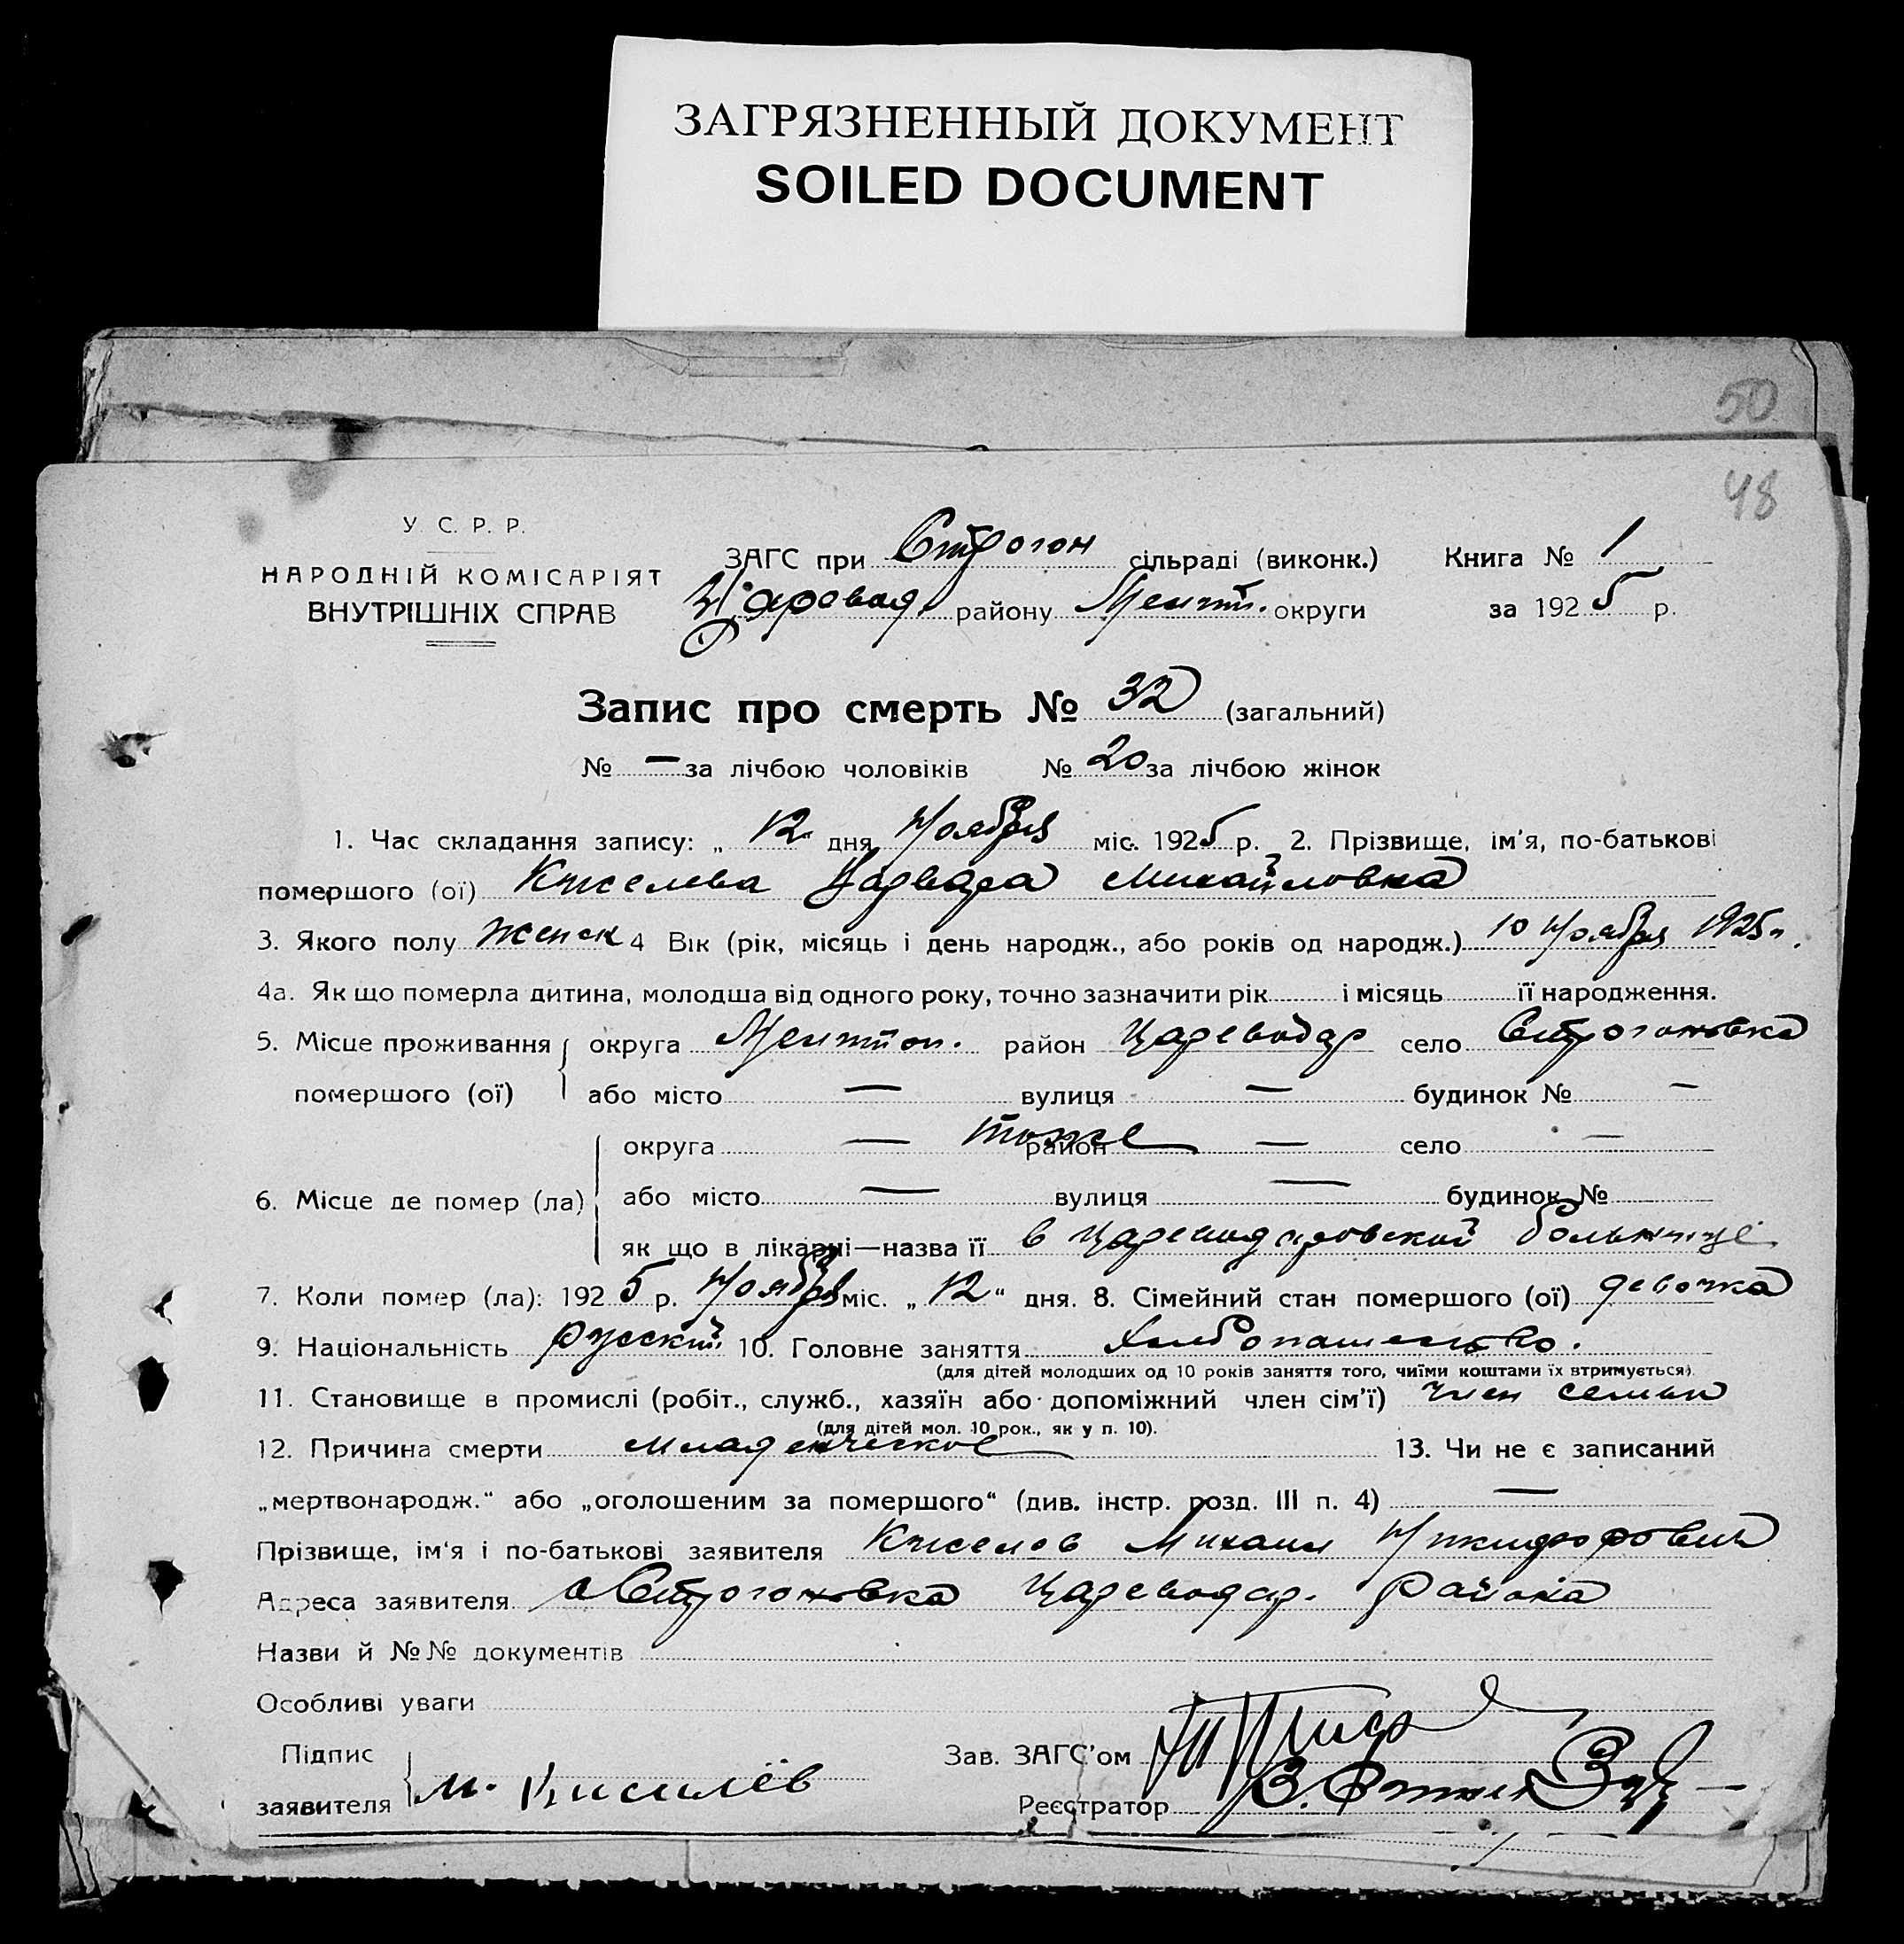 ЗАГРЯЗНЕННЫЙ ДОКУМЕНТ
SOILED DOCUMENT
50
48
У. С. Р. Р.
НАРОДНІЙ КОМІСАРІЯТ
ВНУТРІШНІХ СПРАВ
ЗАГС при Строгон сільраді (виконк.) Книга № 1
Царевод. району Мелит. округи за 1925 р.
Запис про смерть № 32 (загальний)
№ — за лічбою чоловіків № 20 за лічбою жінок
1. Час складання запису: „ 12 “ дня Ноября міс. 1925 р. 2. Прізвище, ім'я, по-батькові
помершого (ої) Киселева Варвара Михайловна
3. Якого полу женск 4 Вік (рік, місяць і день народж., або років од народж.) 10 Ноября 1925 г.
4а. Як що померла дитина, молодша від одного року, точно зазначити рік і місяць її народження.
5. Місце проживання помершого (ої) округа Мелитоп. район Цареводар село Строгоновка
або місто — вулиця — будинок № —
6. Місце де помер (ла) округа — тоже район — село —
або місто — вулиця — будинок №
як що в лікарні—назва її в Цареводаровской больнице
7. Коли помер (ла): 1925 р. Ноября міс. „ 12 “ дня. 8. Сімейний стан помершого (ої) девочка
9. Національність русский 10. Головне заняття хлебопашество.
(для дітей молодших од 10 років заняття того, чиїми коштами їх втримується).
11. Становище в промислі (робіт., служб., хазяїн або допоміжний член сім'ї) член семьи
(для дітей мол. 10 рок., як у п. 10).
12. Причина смерти младенческое 13. Чи не є записаний
„мертвонародж.“ або „оголошеним за помершого“ (див. інстр. розд. III п. 4) —
Прізвище, ім'я і по-батькові заявителя Киселов Михаил Никифорович
Адреса заявителя с Строгоновка Цареводар. Района
Назви й №№ документів
Особливі уваги
Підпис заявителя М. Киселёв
Зав. ЗАГС'ом
Реєстратор